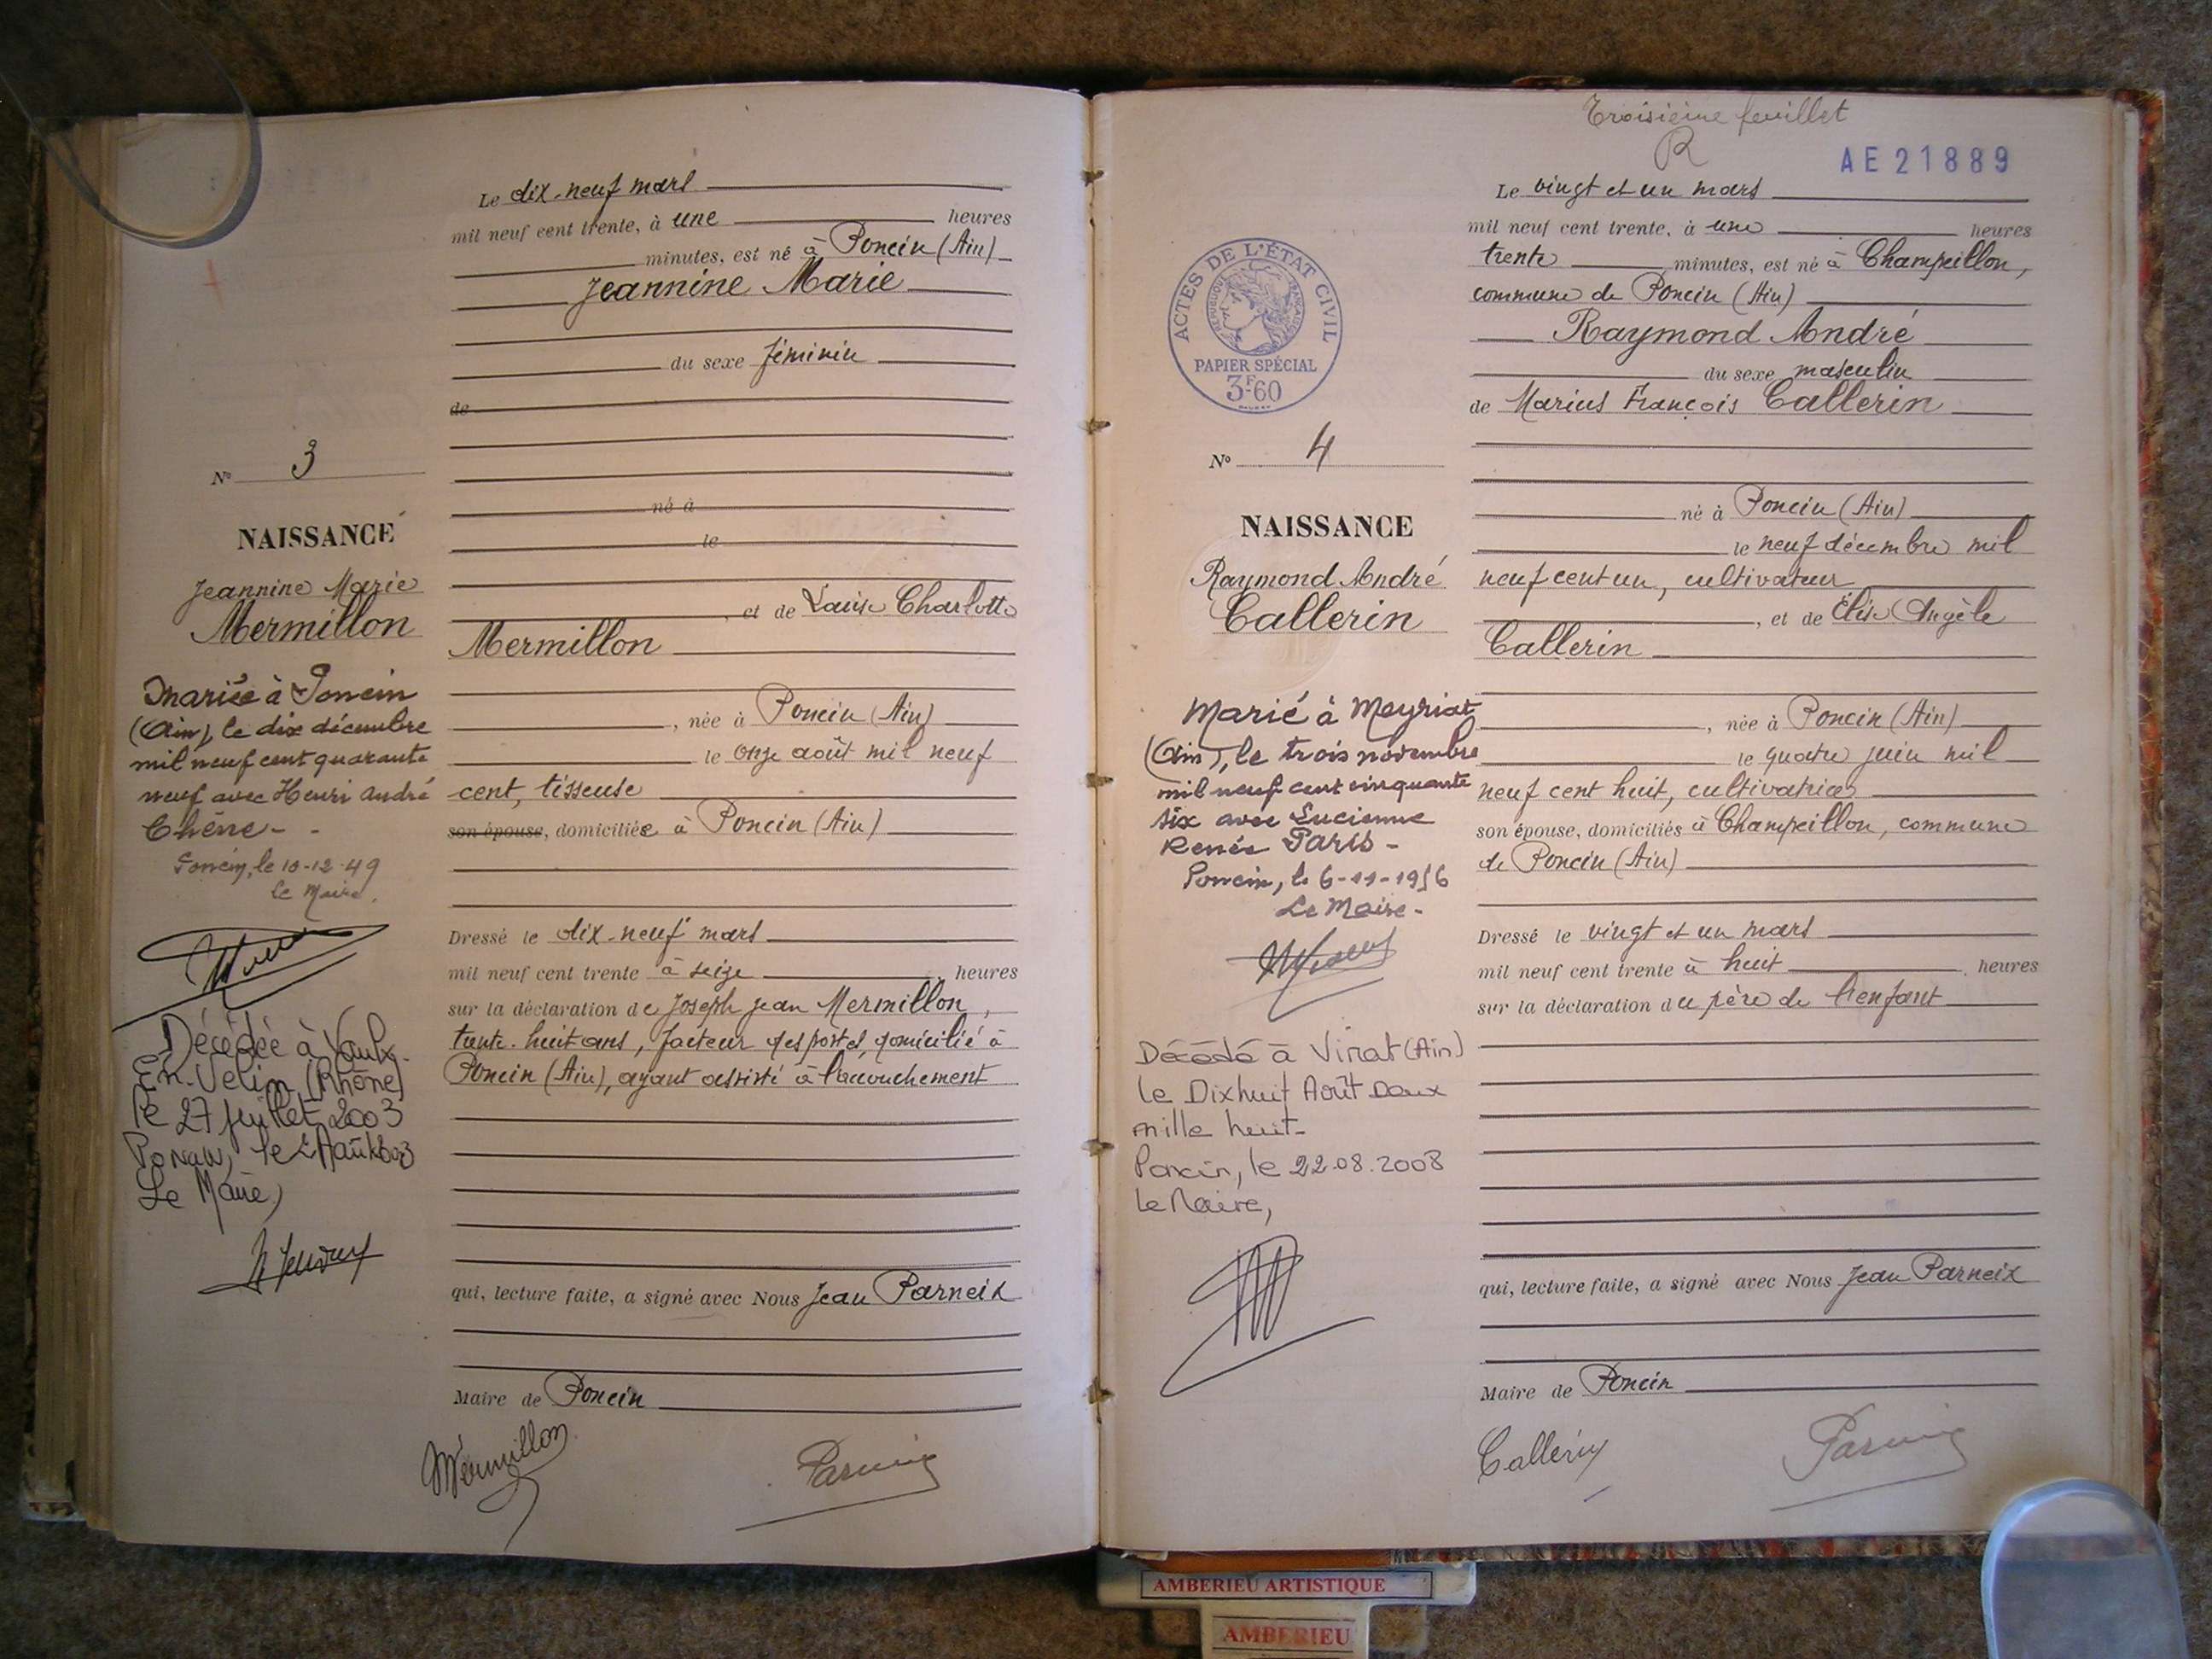 Le dix-neuf mars
mil neuf cent trente, à une heures
minutes, est né à Poncin (Ain)
Jeannine Marie
du sexe féminin
de
né à
le
et de Louise Charlotte
Mermillon
, née à Poncin (Ain)
le onze août mil neuf
cent, tisseuse
son épouse, domiciliée à Poncin (Ain)
Dressé le dix-neuf mars
mil neuf cent trente à seize heures
sur la déclaration de Joseph Jean Mermillon,
trente-huit ans, facteur des postes, domicilié à
Poncin (Ain), ayant assisté à l'accouchement
qui, lecture faite, a signé avec Nous Jean Parneix
Maire de Poncin
Mermillon
N° 3
NAISSANCE
Jeannine Marie
Mermillon
Mariée à Poncin
(Ain), le dix décembre
mil neuf cent quarante
neuf avec Henri André
Chêne - -
Poncin, le 10-12-49
Le Maire.
Décédée à Vaulx-
en-Velin (Rhône)
le 27 juillet 2003
Le Maire,
Troisième feuillet
R
AE 21889
Le vingt et un mars
mil neuf cent trente, à une heures
trente minutes, est né à Champeillon,
commune de Poncin (Ain)
Raymond André
du sexe masculin
de Marius François Callerin
né à Poncin (Ain)
le neuf décembre mil
neuf cent un, cultivateur
, et de Élise Angèle
Callerin
, née à Poncin (Ain)
le quatre juin mil
neuf cent huit, cultivatrice
son épouse, domiciliés à Champeillon, commune
de Poncin (Ain)
Dressé le vingt et un mars
mil neuf cent trente à huit heures
sur la déclaration du père de l'enfant
qui, lecture faite, a signé avec Nous Jean Parneix
Maire de Poncin
Callerin
ACTES DE L'ÉTAT CIVIL
RÉPUBLIQUE FRANÇAISE
PAPIER SPÉCIAL
3F60
N° 4
NAISSANCE
Raymond André
Callerin
Marié à Meyriat
(Ain), le trois novembre
mil neuf cent cinquante
six avec Lucienne
Renée Paris -
Poncin, le 6-11-1956
Le Maire -
Décédé à Viriat (Ain)
le Dix huit Août Deux
mille huit-
Poncin, le 22.08.2008
Le Maire,
AMBERIEU ARTISTIQUE
AMBERIEU